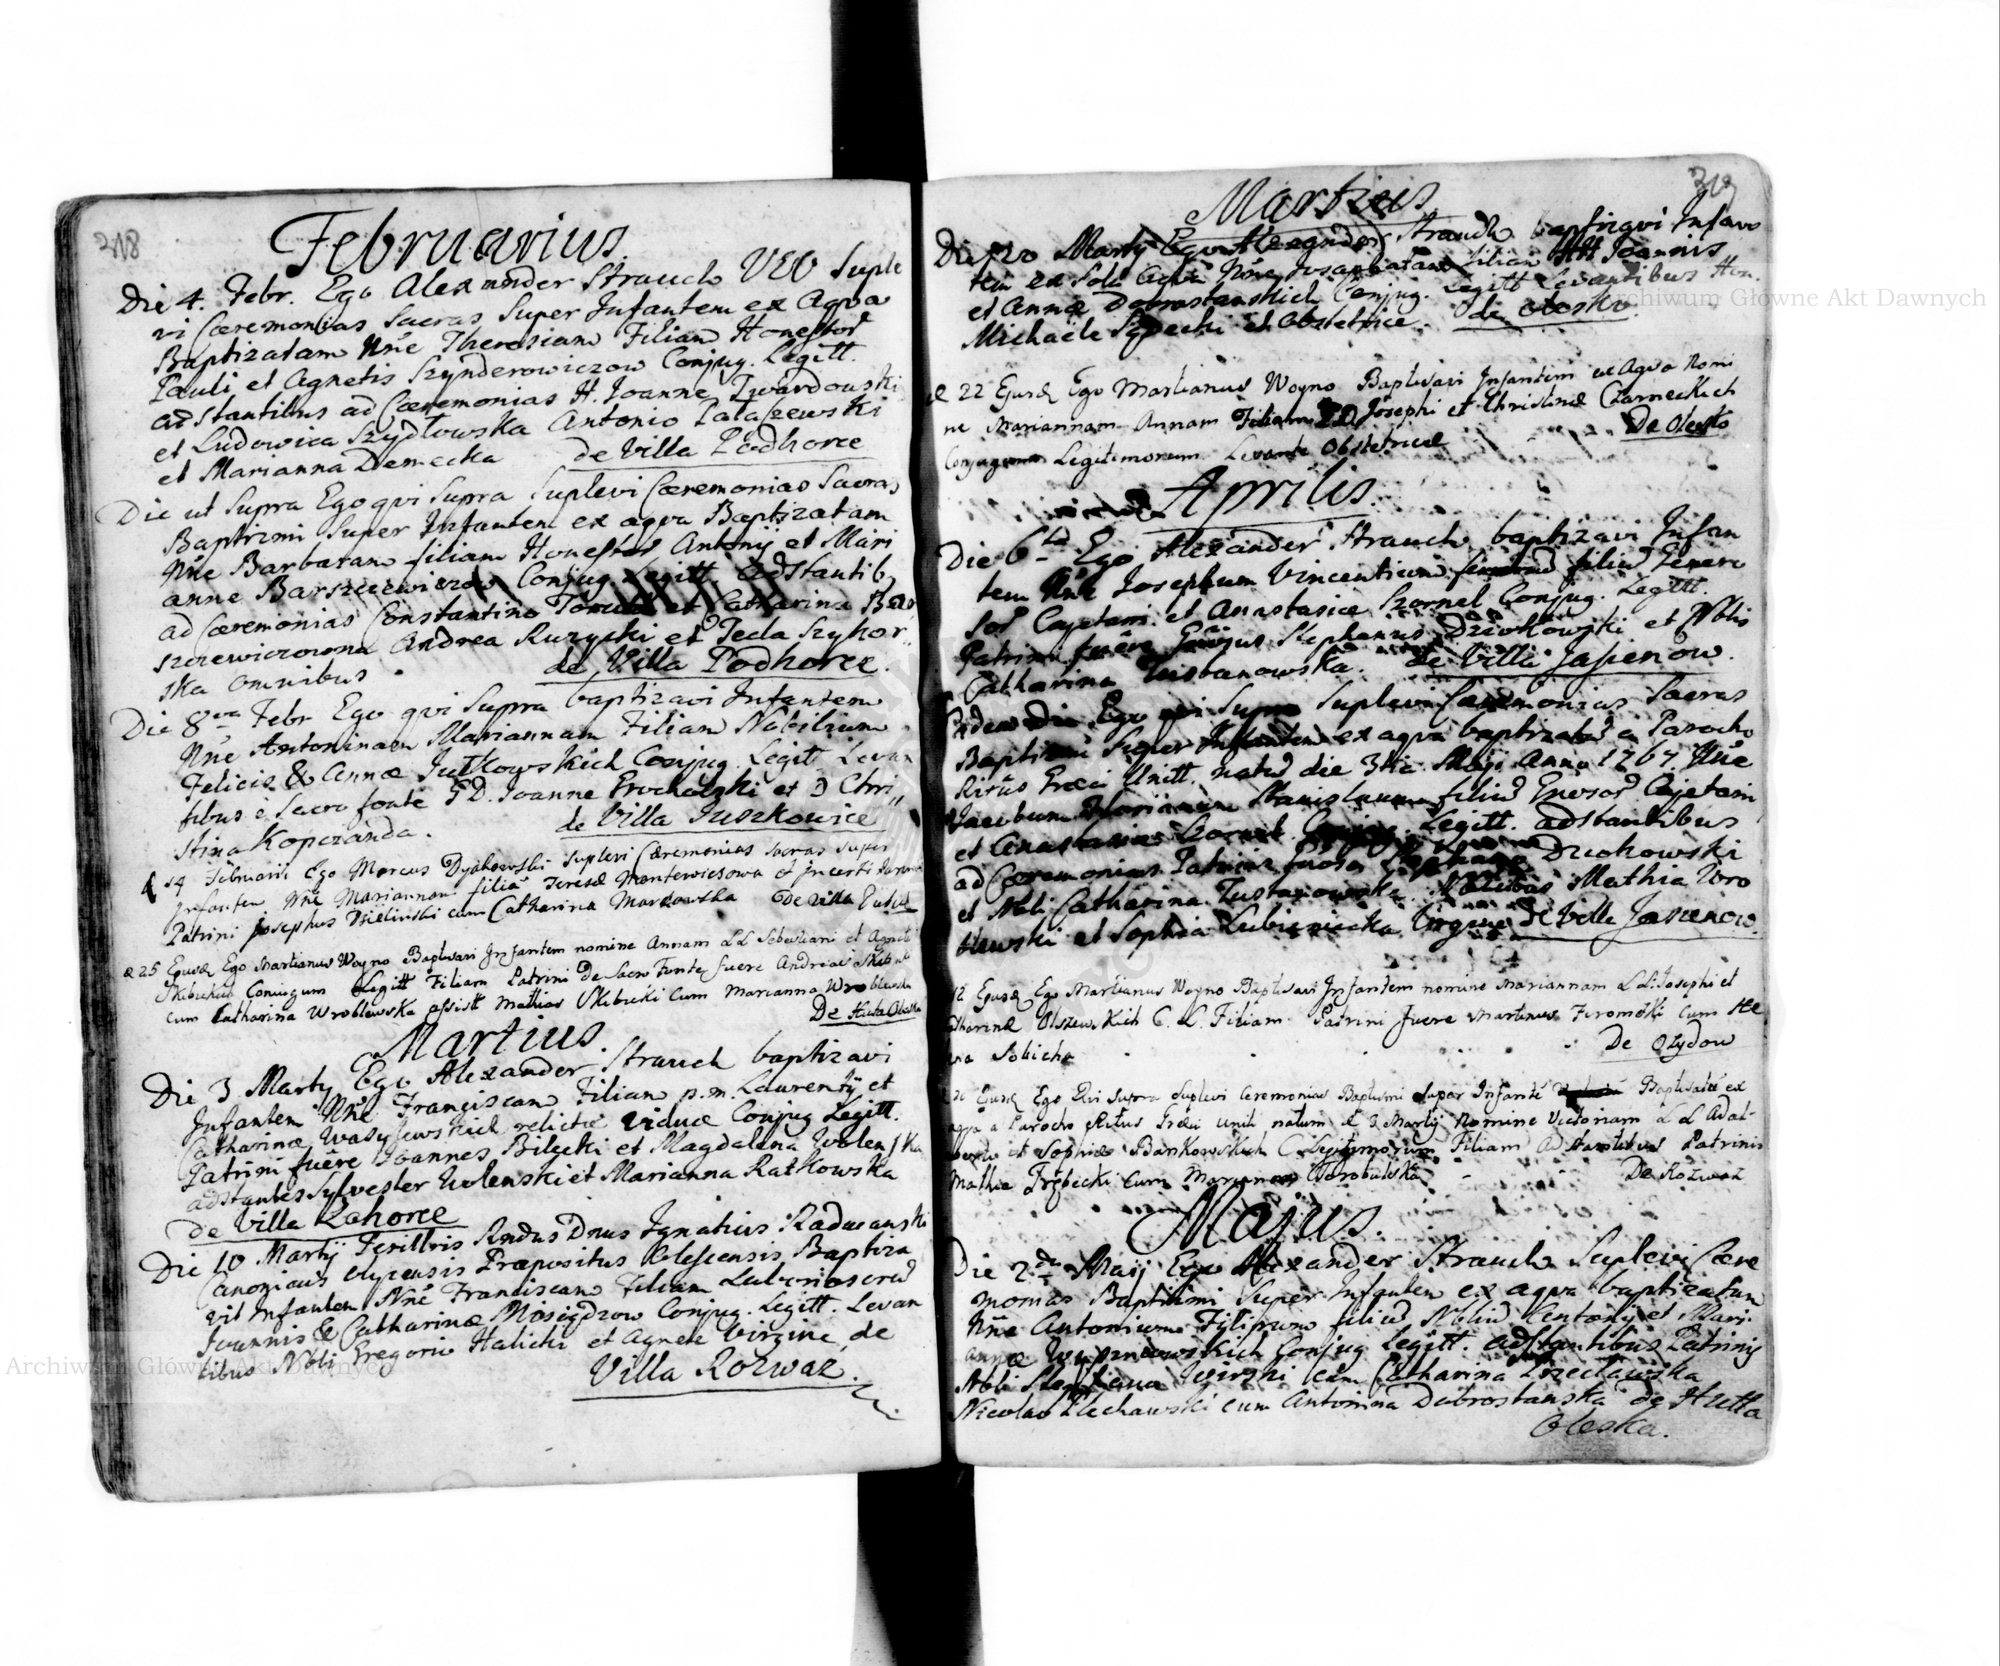 218
Februarius
Die 4. Febr. Ego Alexander Strauch VEO Suple
vi Cæremonias Sacras Super Infantem ex Aqva
Baptizatam Nñe Theresiam Filiam Honestor
Pauli et Agnetis Szynderowiczow Conjug. Legitt.
adstantibus ad Cæremonias H. Joanne Twardowski
et Ludowica Szydłowska Antonio
et Marianna Demecka de Villa Podhorce
Die ut Supra Ego qvi Supra Suplevi Cæremonias Sacras
Baptismi Super Infantem ex aqva Baptizatam
Nñe Barbaram filiam Honestor Antonij et Mari
anne Barszczewiczow Conjug. Legitt. adstantib
ad Cæremonias Constantino et Catharina Bar
szczewiczowna Andrea Ruzycki et Tecla Szykor
ska omnibus de Villa Podhorce.
Die 8va Febr Ego qvi Supra baptizavi Infantem
Nñe Antoninam Mariannam Filiam Nobilium
Felicis & Annæ Jutkowskich Conjug. Legitt Levan
tibus è Sacro fonte G D. Joanne et D Chri
stina de Villa Juszkowice
14 Februarii Ego Marcus Suplevi Cæremonias sacras super
Infantem Nñe Mariannam filiã Teresæ et incerti
Patrini Josephus Dzielinski cum Catharina Markowska De Villa
25 Ejusd Ego Martianus Woyno Baptisavi Infantem nomine Annam LL Sebastiani et Agneti
Coniugum Legitt Filiam Patrini De Sacro Fonte fuere Andreas
cum Catharina Wroblewska assistt Mathias Skibicki Cum Marianna Wroblewska
De Huta Oleska
Martius.
Die 3 Martij Ego Alexander Strauch baptizavi
Infantem Nñe Franciscam Filiam p.m. Laurentij et
Catharinæ relictæ viduæ Conjug Legitt.
Patrini fuêre Joannes Bilecki et Magdalena Wolenska
adstantes Sylvester Wolenski et Marianna Ratkowska
de Villa Zahorce
Die 10 Martij Rndus Dnus Ignatius Radwanski
Canonicus Præpositus Olescensis Baptiza
vit Infantem Nñe Franciscam Filiam Laboriosorũ
Joannis & Catharinæ Conjug. Legitt. Levan
tibus Nbli Gregorio Halicki et Agnete Virgine, de
Villa Rozwaz.
219
Martius
Die 20 Martij Ego Alexander Strauch baptizavi Infan
tem ex Sola Aqva Nñe Josaphatam filiam HH Joannis
et Annæ Dobrostanskich Conjug. Legitt Levantibus Hon.
Michaele et Obstetrice. de Olesko.
22 Ejusd Ego Martianus Woyno Baptisavi Infantem ex Aqva Nomi
ne Mariannam Annam Filiam Josephi et Christinæ Czarneckich
Conjugum Legitimorum Levante Obstetrice De Olesko
Aprilis.
Die 6ta Ego Alexander Strauch baptizavi Infan
tem Nñe Josephum Vincentium filiũ Genero
sor Cajetani et Anastasiæ Szornel Conjug. Legitt.
Patrini fuêre Stephanus Dziokowski et Nblis
Catharina Tustanowska. de Villa Jasienow.
Eadem die Ego qvi Supra Suplevi Cæremonias Sacras
Baptismi Super Infantem ex aqva baptizatũ a Parocho
Ritûs Græci Unitt. natũ die 3tia Maji Anno 1767 Nñe
Jacobum Florianum Stanislaum filiũ Gñerosor Cajetani
et Anastasiæ Szornel Conjug. Legitt. adstantibus
ad Cæremonias Patrinis Stephano Dziokowski
et Nbli Catharina Tustanowska. Nblibus Mathia Wro
blewski et Sophia Lubieniecka Virgine de Villa Jasienow.
12 Ejusd Ego Martianus Woyno Baptisavi Infantem nomine Mariannam LL: Josephi et
Catharinæ Olszewskich C. L. Filiam Patrini fuere Martinus cum He
lena Sobicha De Ozydow
Ejusd Ego Qui supra suplevi Ceremonias Baptismi super Infantẽ Baptisatã ex
aqva a Parocho Ritus Græci Uniti natam d 3 Martij Nomine Victoriam LL Adal
berti et Sophiæ Bankowskich C. Legitimorum Filiam Adstantibus Patrinis
Mathia Cum Marianna De Rozwaz
Majus.
Die 2da Maij Ego Alexander Strauch Suplevi Cære
monias Baptismi Super Infantem ex aqva baptizatum
Nñe Antonium Filipum filiũ Nbliũ Antonij et Mari
annæ Conjug Legitt. adstantibus Patrinis
Nbli cum Catharina
Nicolao cum Antonina Dobrostanska de Hutta
Oleska.
Archiwum Główne Akt Dawnych
Archiwum Główne Akt Dawnych